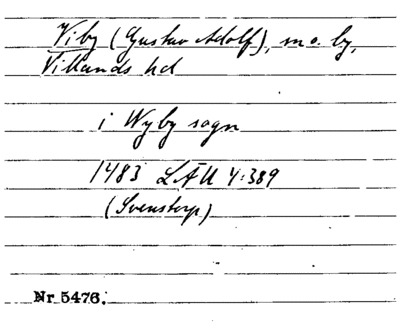 Viby (Gustav Adolf), sn o. by,
Villands hd
i Wyby sogn
1483 LÄU 4:389
(Svenstorp)
Nr 5476.